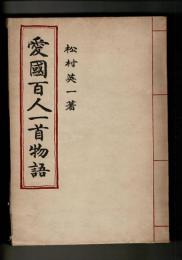 松村英一著
愛國百人一首物語